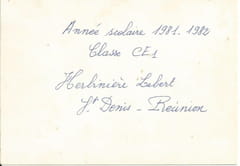 Année scolaire 1981. 1982
Classe CE1
Herbinière Lebert
St Denis - Réunion